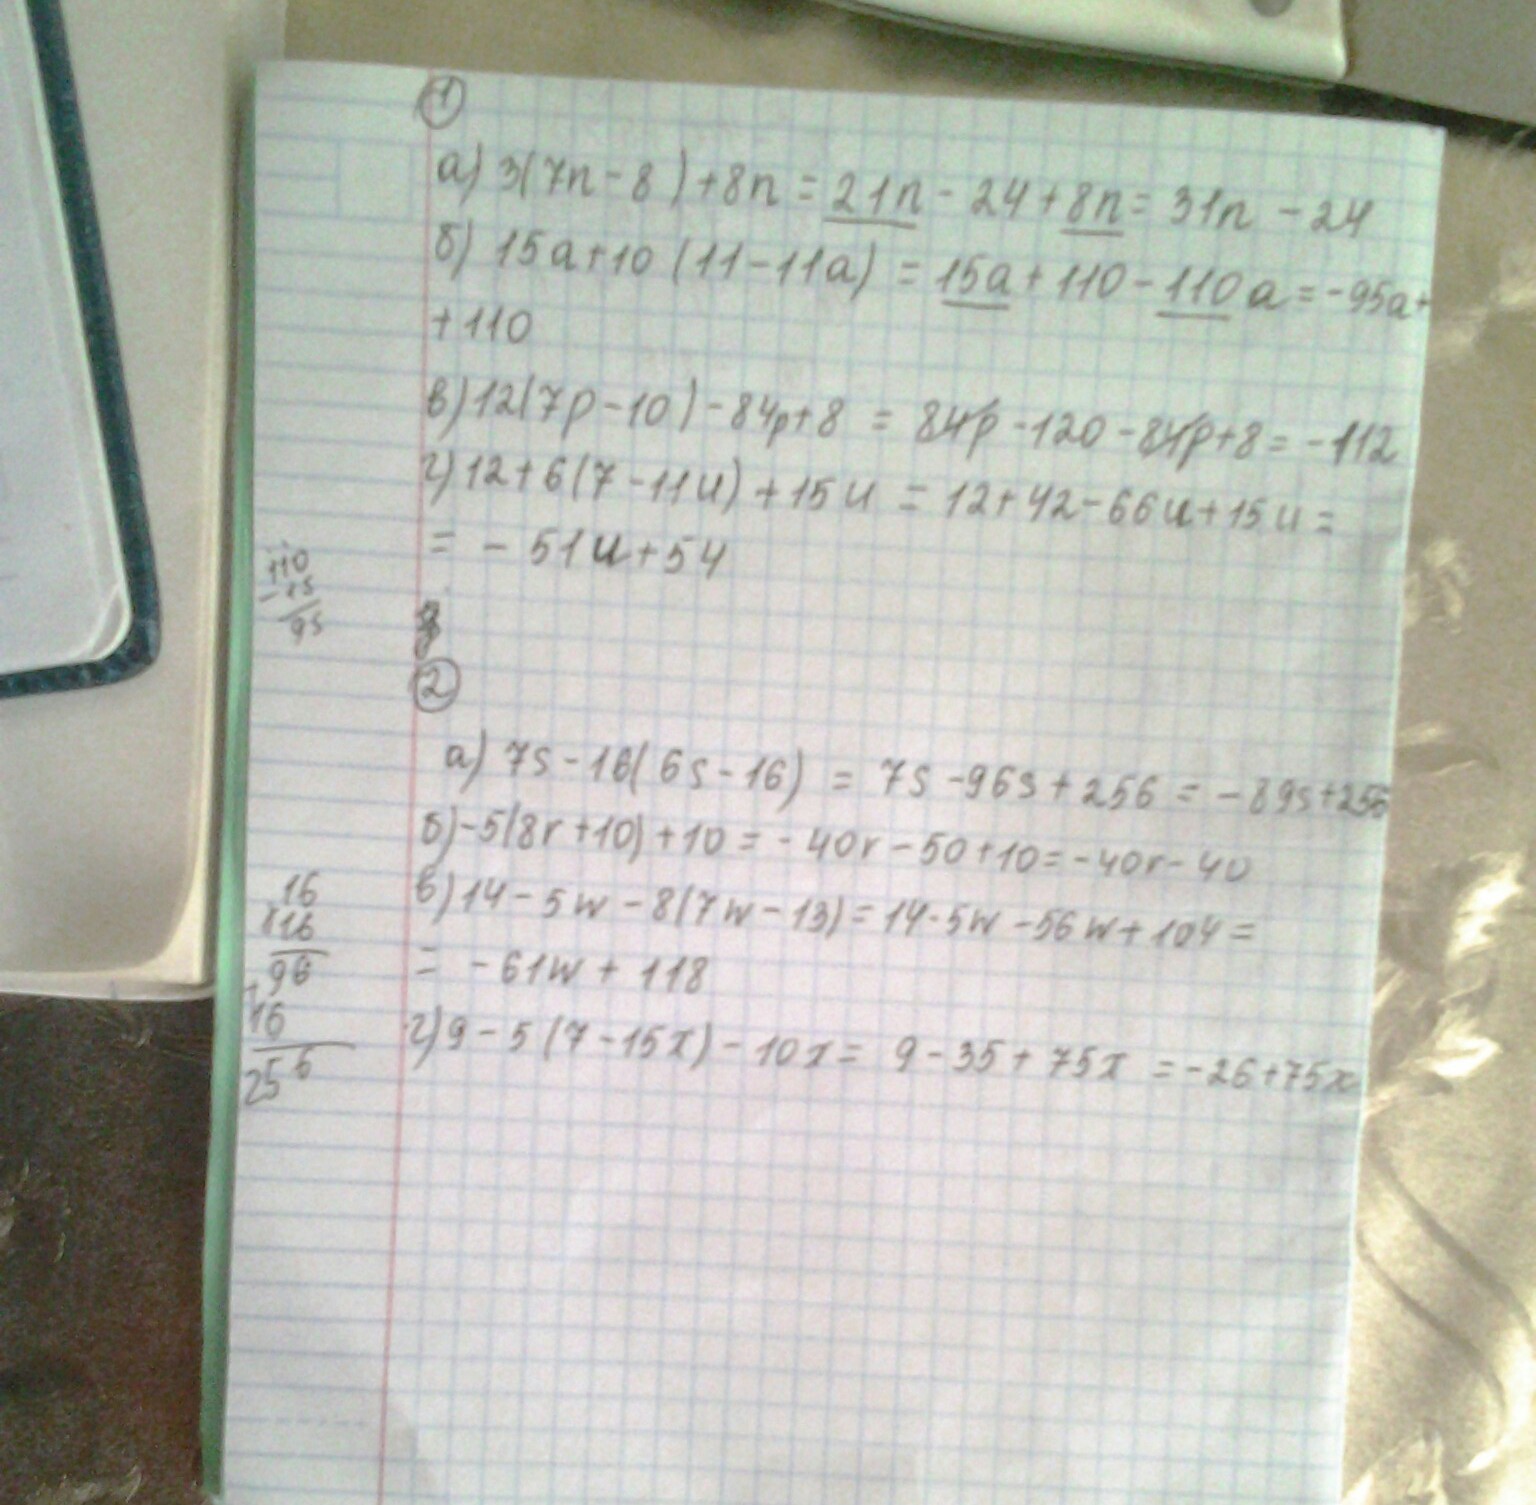 1
а) 3(7n - 8) + 8n = 21n - 24 + 8n = 31n - 24
б) 15a + 10 (11 - 11a) = 15a + 110 - 110a = -95a +
+ 110
в) 12(7p - 10) - 84p + 8 = 84p - 120 - 84p + 8 = -112
г) 12 + 6(7 - 11u) + 15u = 12 + 42 - 66u + 15u =
= - 51u + 54
110
- 15
95
2
а) 7s - 16(6s - 16) = 7s - 96s + 256 = - 89s + 256
б) -5(8r + 10) + 10 = - 40r - 50 + 10 = -40r - 40
в) 14 - 5w - 8(7w - 13) = 14 - 5w - 56w + 104 =
= - 61w + 118
г) 9 - 5 (7 - 15x) - 10x = 9 - 35 + 75x = -26 + 75x
16
x16
96
+
16
256